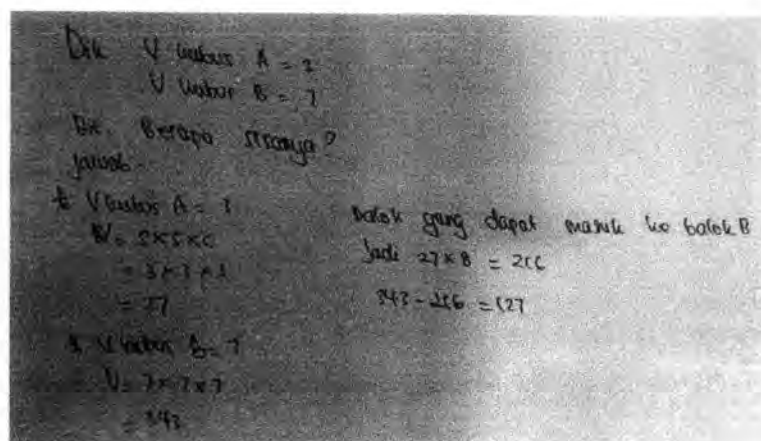 Dik V kubus A = 3
V kubus B = 7
Dit Berapa sisanya?
jawab
V kubus A = 3
V = S x S x S
= 3 x 3 x 3
= 27
V kubus B = 7
V = 7 x 7 x 7
= 343
balok yang dapat masuk ke balok B
Jadi 27 x 8 = 216
343 - 216 = 127